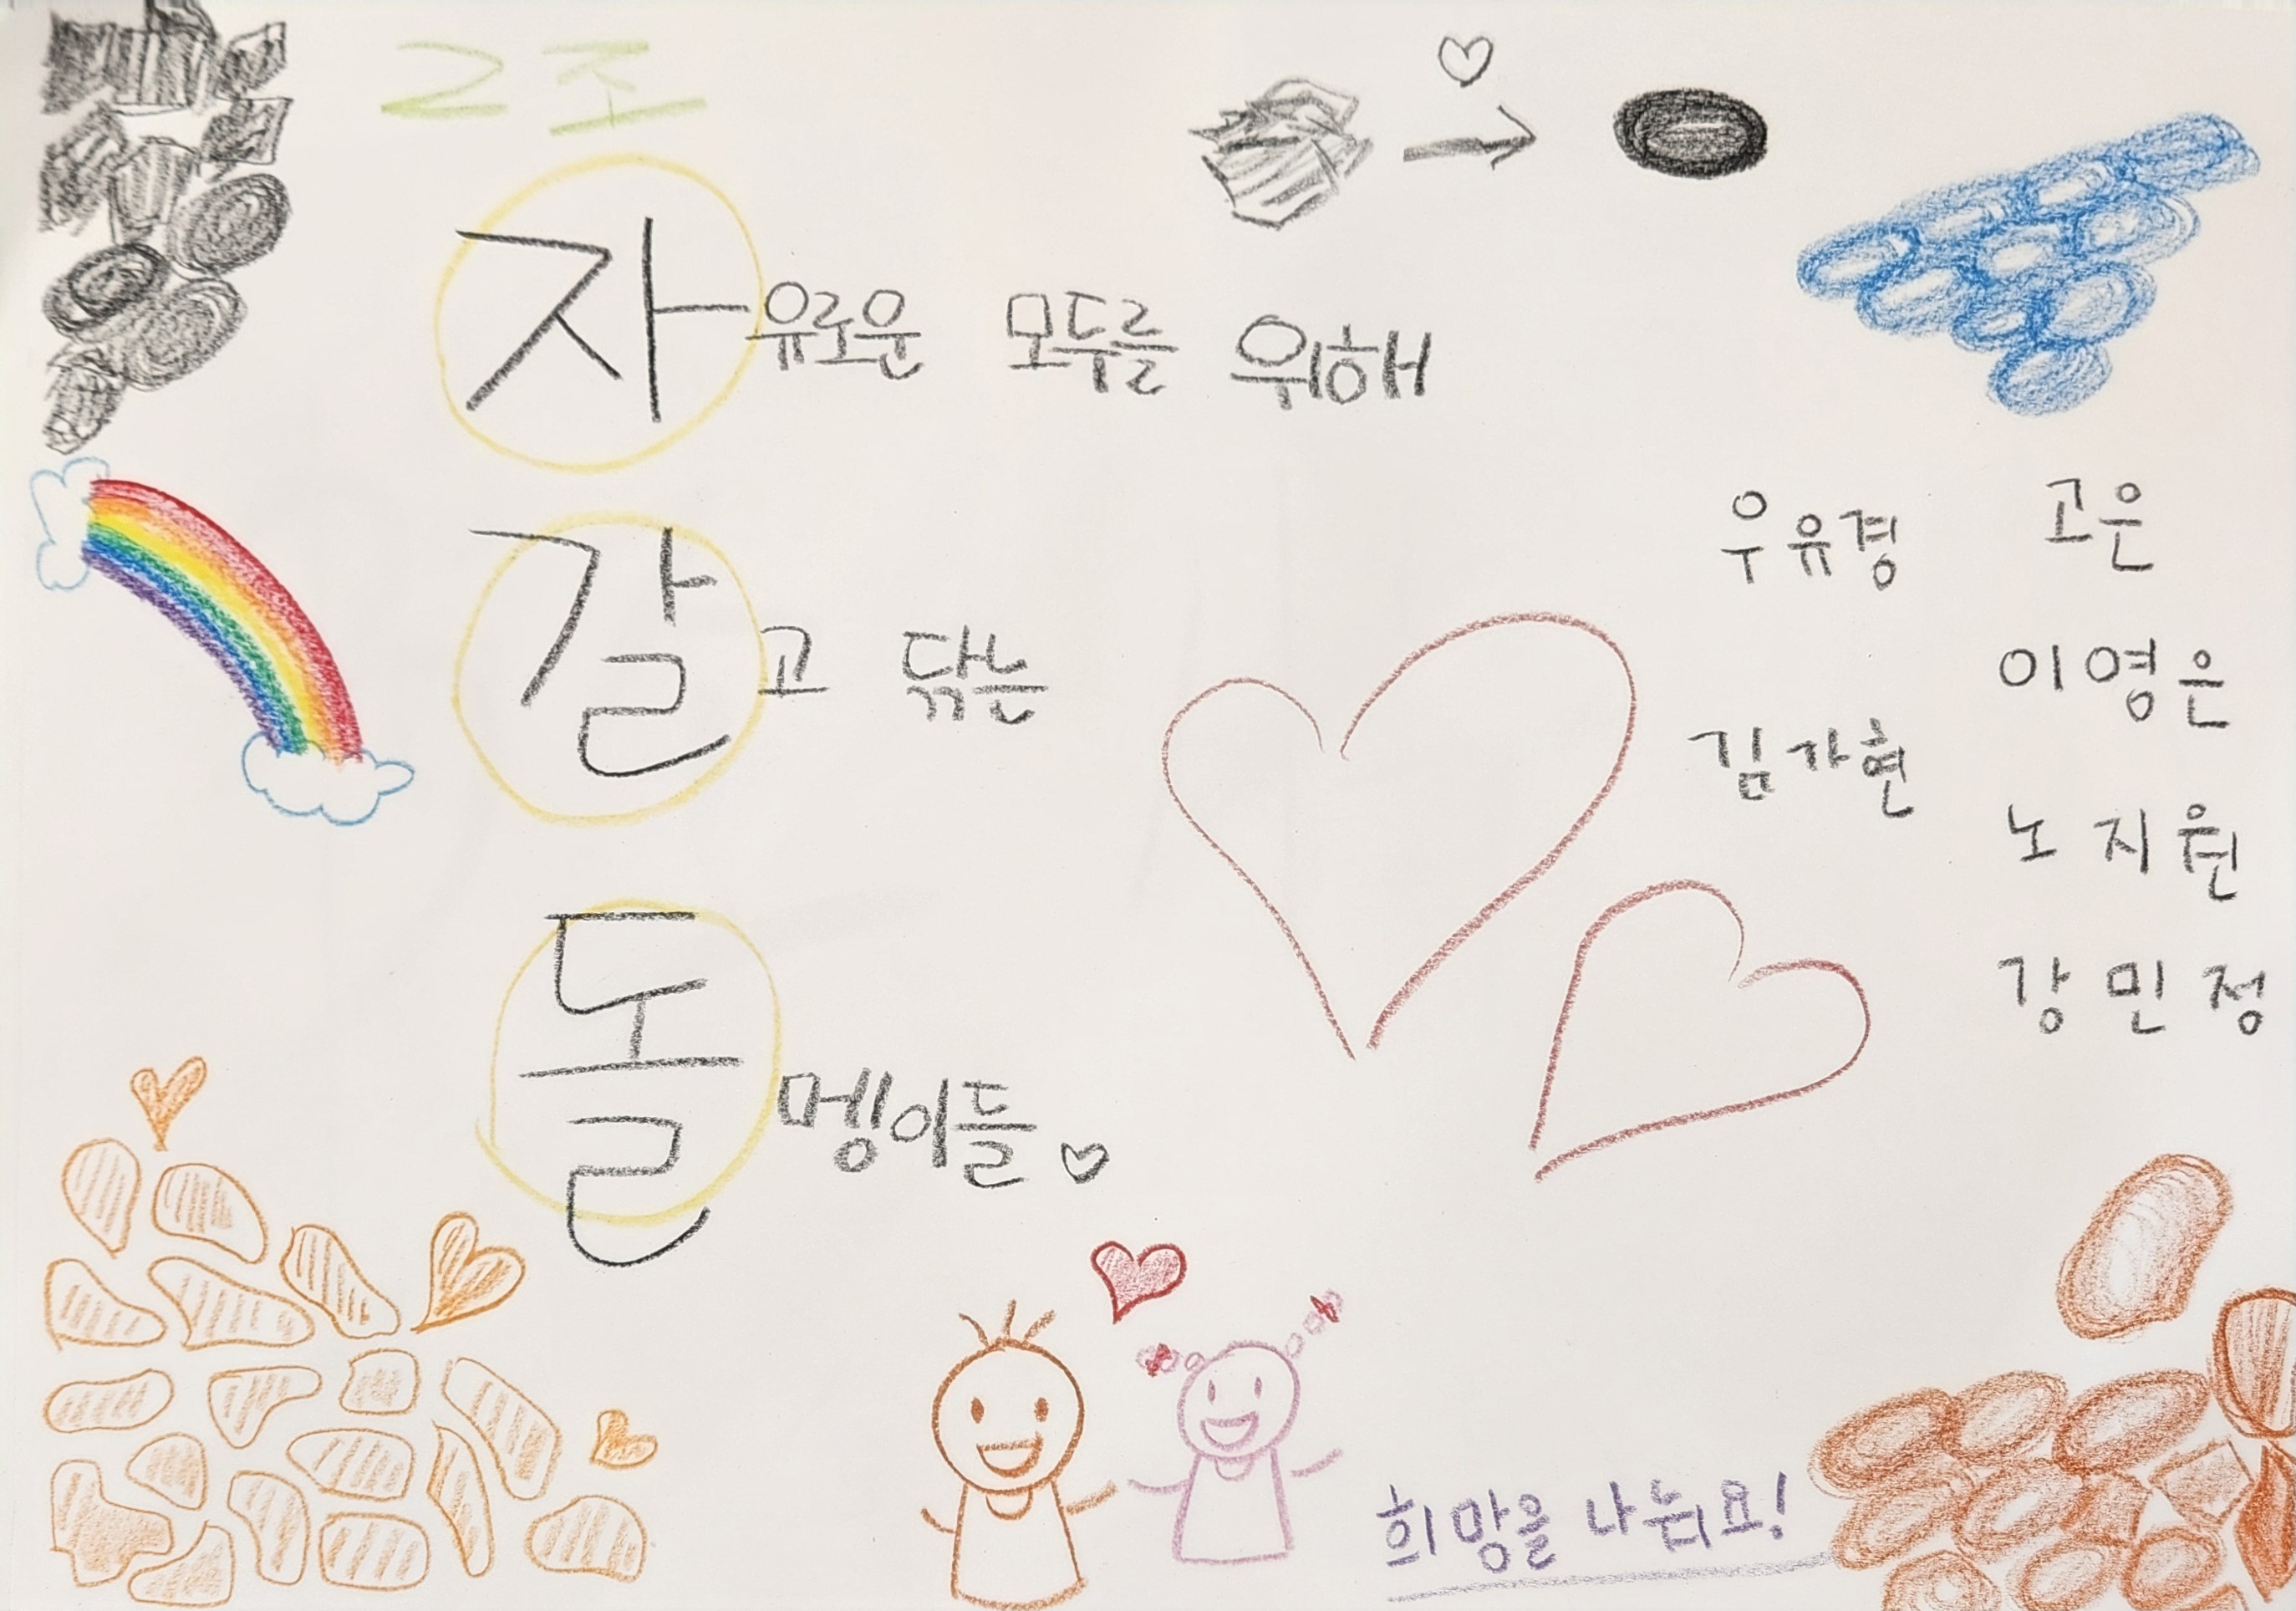 2조
자유로운 모두를 위해
갈고 닦는
돌멩이들♡
우유경 고은
이영은
김가현
노지원
강민정
희망을 나눠요!